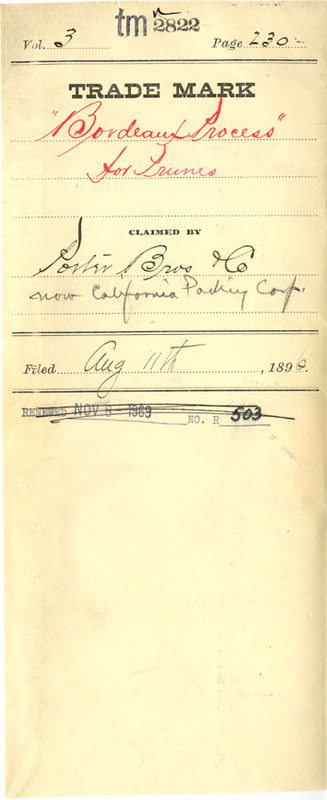 tm 2822
Vol. 3 Page 230
TRADE MARK
"Bordeaux Process"
for Prunes
CLAIMED BY
Porter Bros & Co
now California Packing Corp.
Filed Aug 11th, 1896.
RENEWED NOV 8 - 1969 NO. R 503